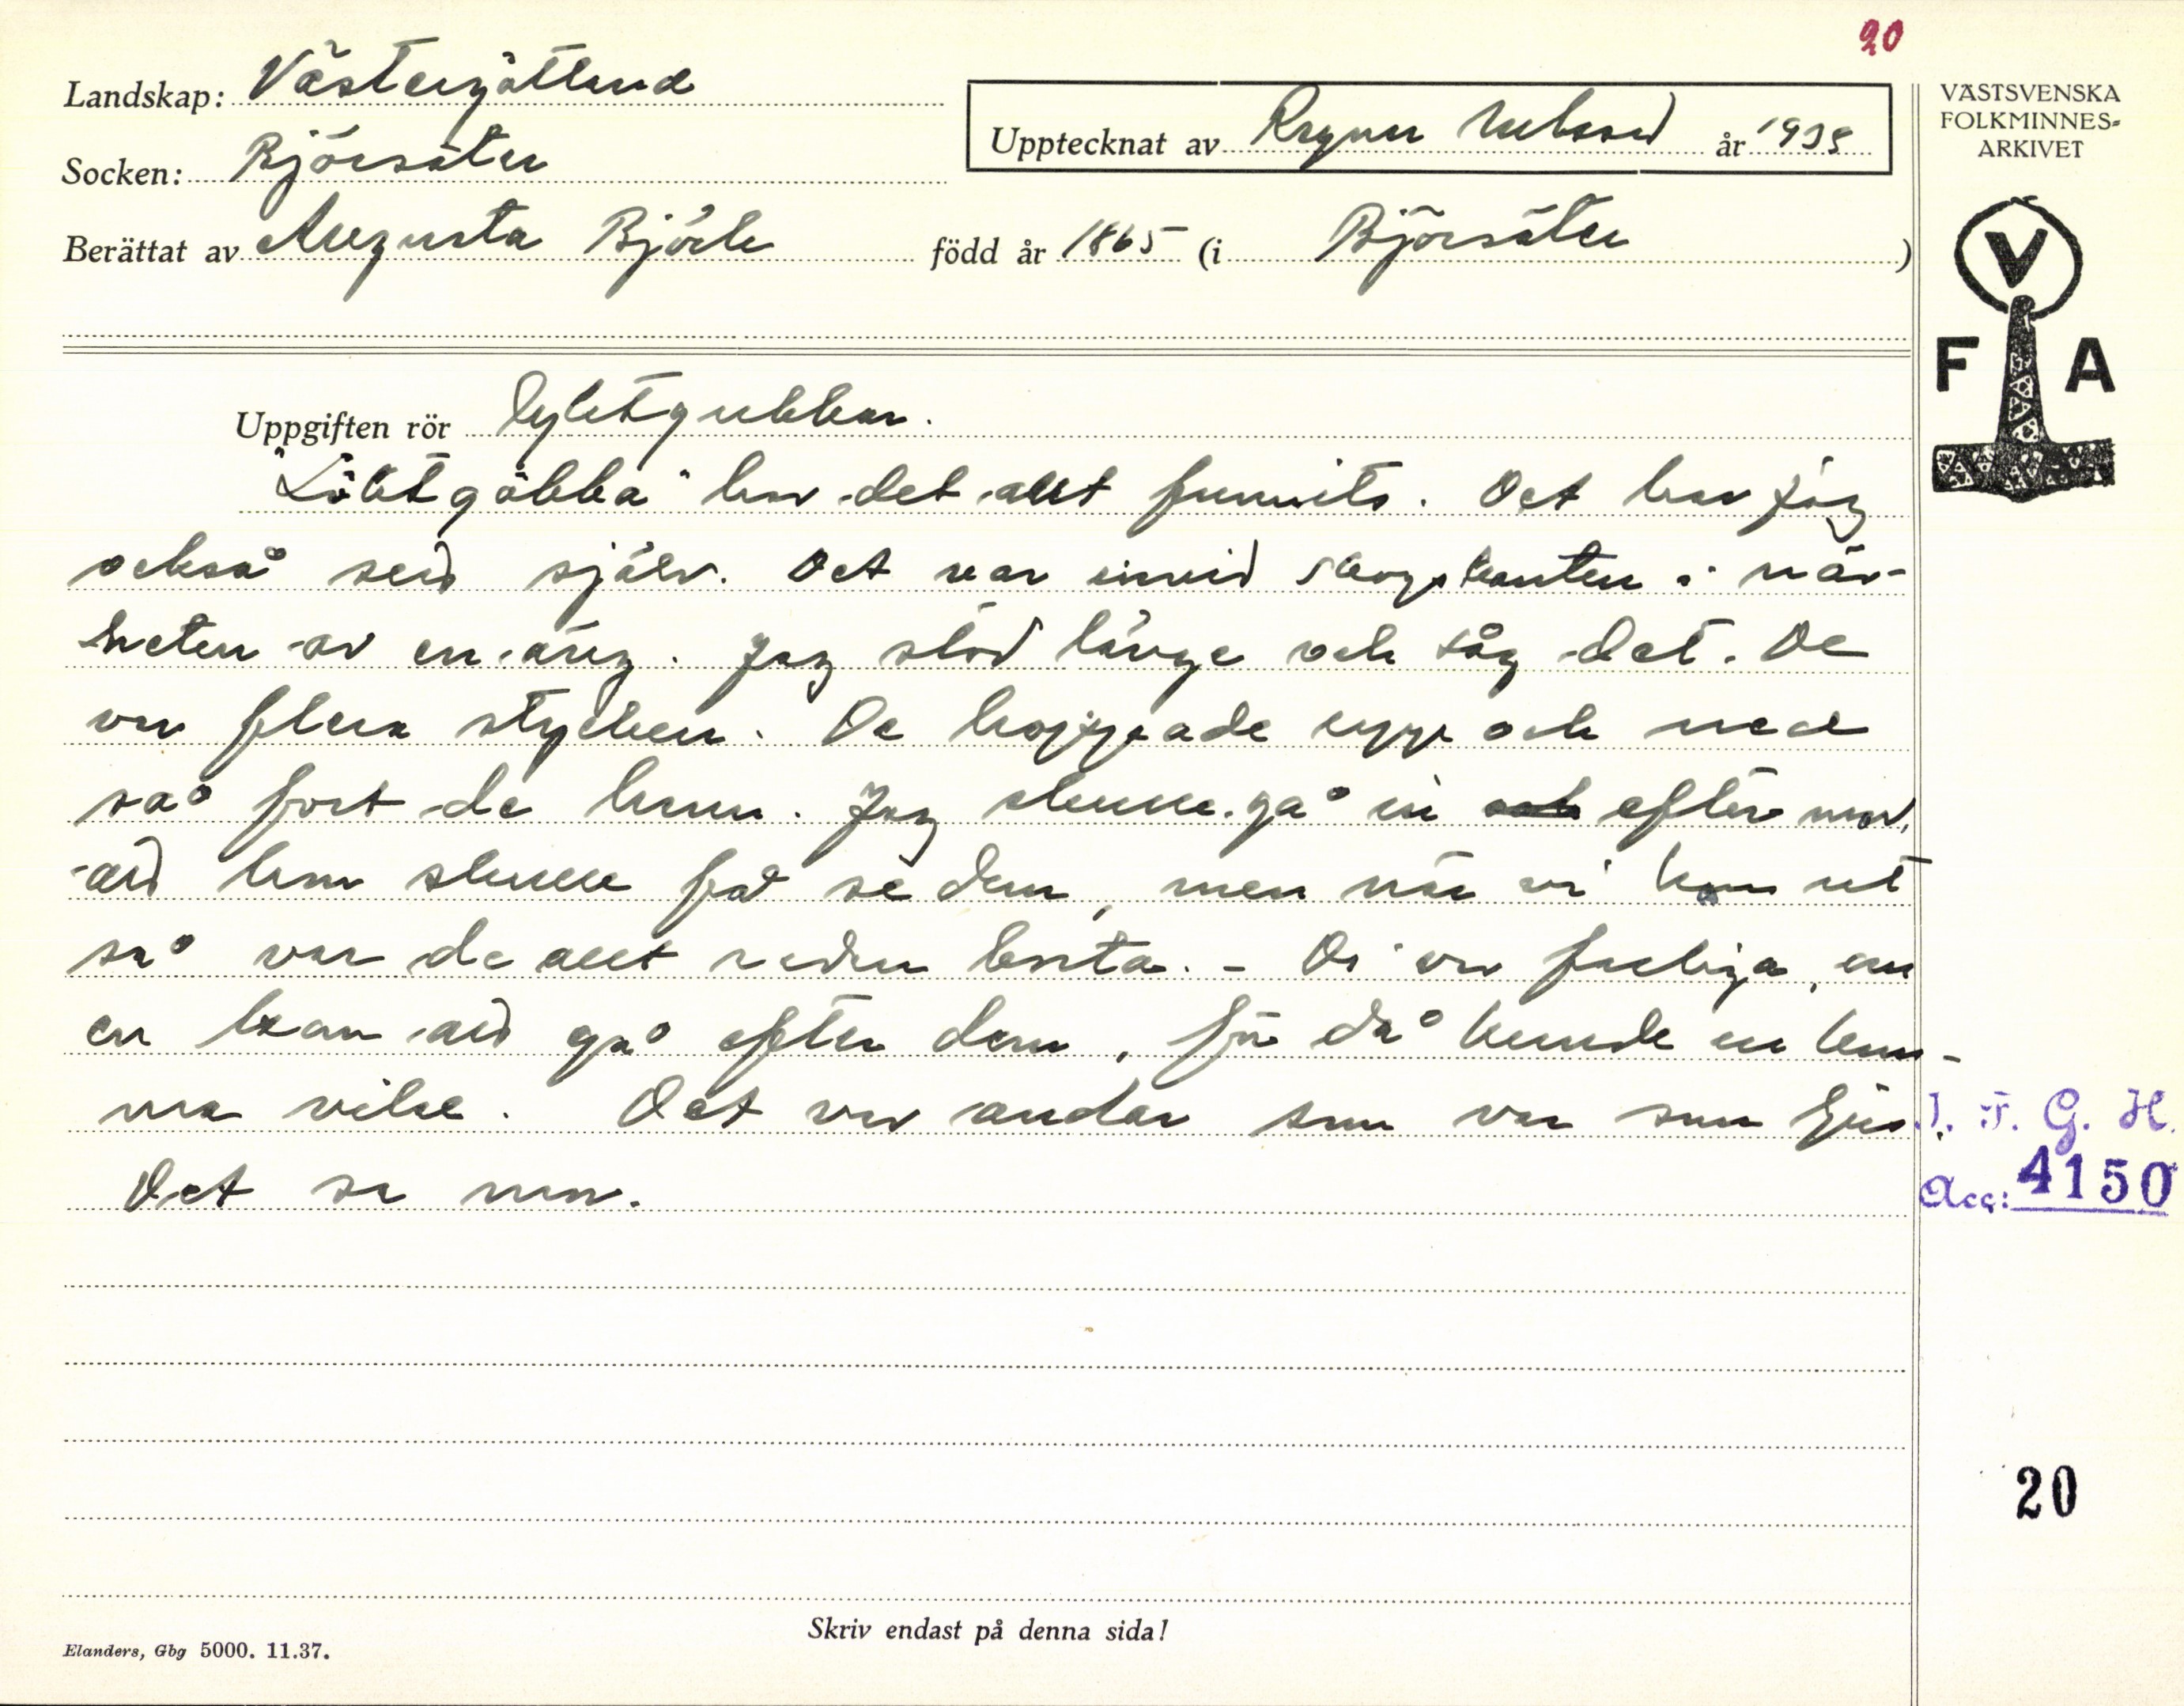 20
Landskap: Västergötland
Socken: Björsäter
Upptecknat av Ragnar Nilsson år 1938
Berättat av Augusta Björk född år 1865 (i Björsäter)
VÄSTSVENSKA
FOLKMINNES-
ARKIVET
V
F A
Uppgiften rör lyktgubbar.
"Löktgöbba" har det allt funnits. Det har jag
också sett själv. Det var invid skogskanten i när-
heten av en äng. Jag stod länge och såg det. De
var flera stycken. De hoppade upp och ned
så fort de hann. Jag skulle gå in och efter mor,
att hon skulle få se dem, men när vi kom ut
så var de allt redan borta. - De var farliga, om
en kom att gå efter dem, för då kunde en kom-
ma vilse. Det var andar som var som ljus.
Det sa mor.
I. F. G. H.
Acc: 4150
20
Skriv endast på denna sida!
Elanders, Gbg 5000. 11.37.